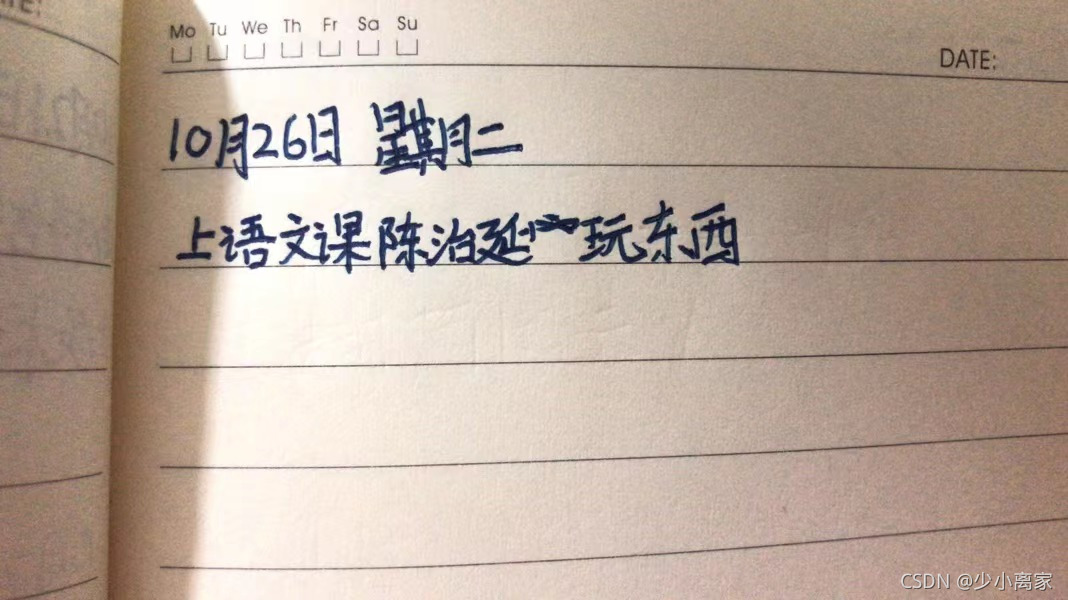 Mo Tu We Th Fr Sa Su
DATE:
10月26日 星期二
上语文课陈治延玩东西
CSDN @少小离家